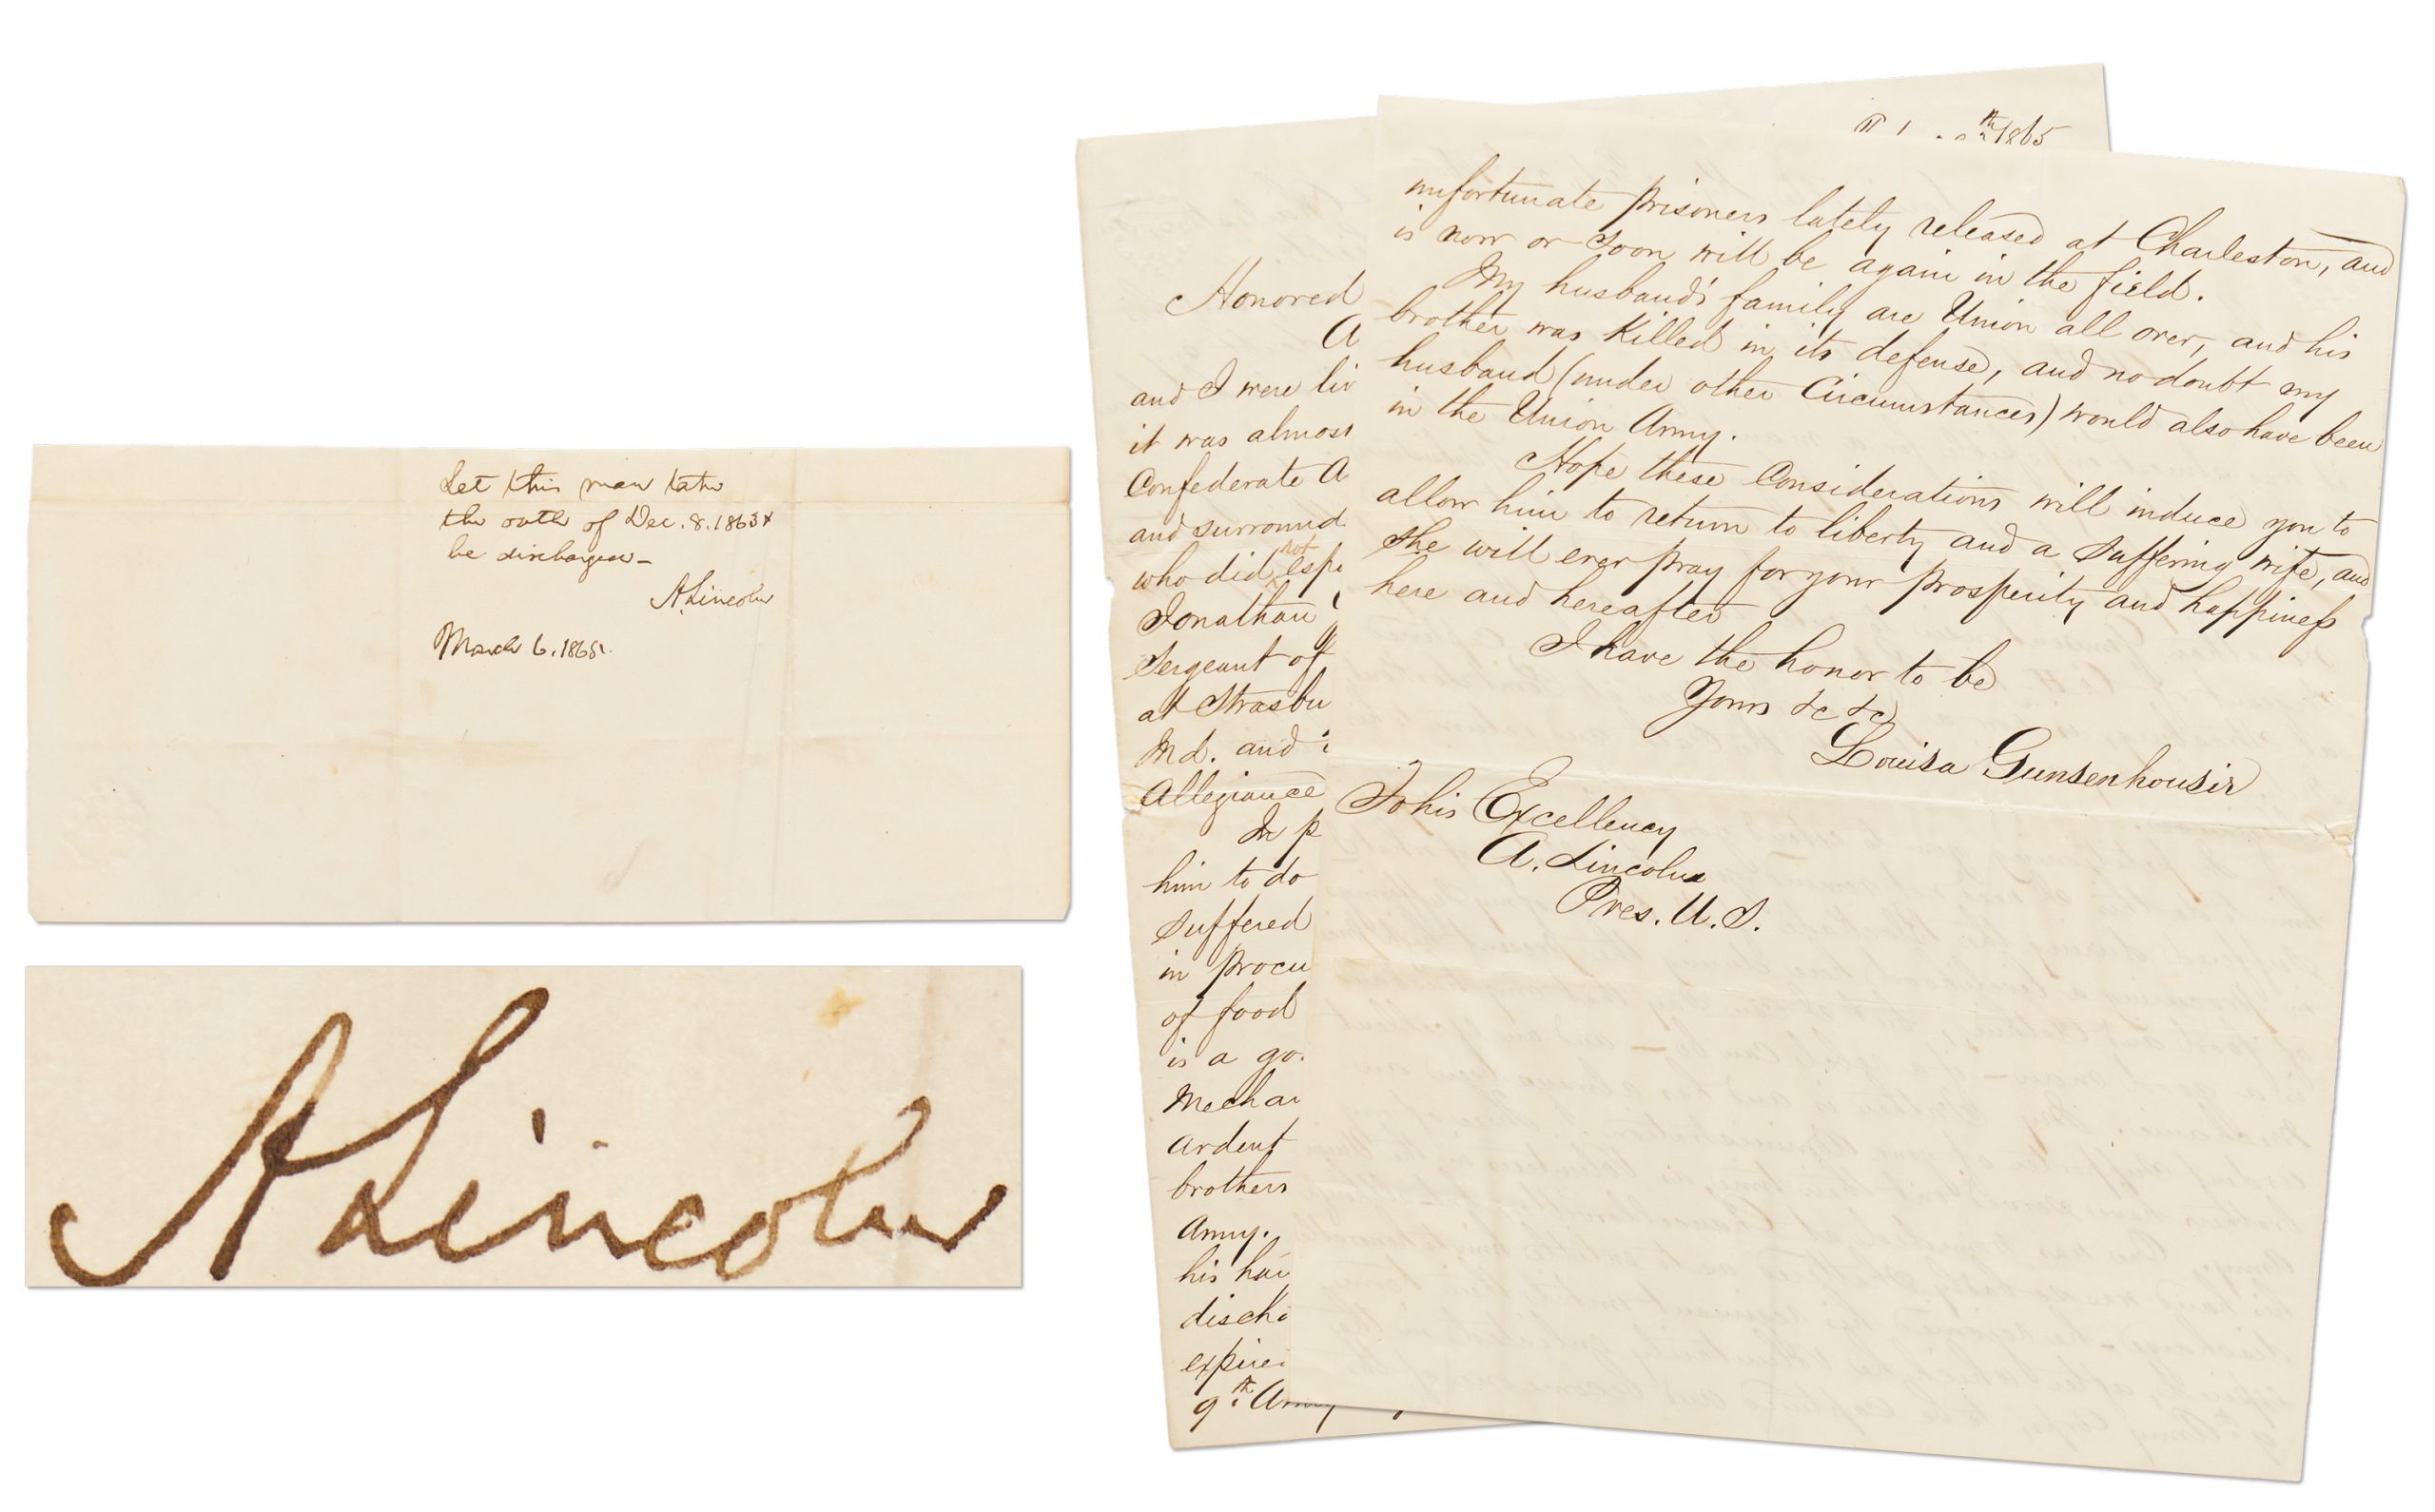 Let this man take
the oath of Dec. 8. 1863 &
be discharged—
A. Lincoln
March 6. 1865.
A. Lincoln
th 1865
Honored
A
and I were liv
it was almost
Confederate A
and surround
who did not espe
Jonathan
Sergeant of
at Strasbu
Md. and
Allegiance
In p
him to do
suffered
in procu
of food
is a go
Mechan
ardent
brothers
Army.
his han
discha
expire
9th Army
unfortunate prisoners lately released at Charleston, and
is now or soon will be again in the field.
My husband's family are Union all over, and his
brother was killed in its defense, and no doubt my
husband (under other Circumstances) would also have been
in the Union Army.
Hope these Considerations will induce you to
allow him to return to liberty and a suffering wife, and
she will ever pray for your prosperity and happiness
here and hereafter
I have the honor to be
Yours &c &c
Louisa Gunsenhousir
To his Excellency
A. Lincoln
Pres. U. S.